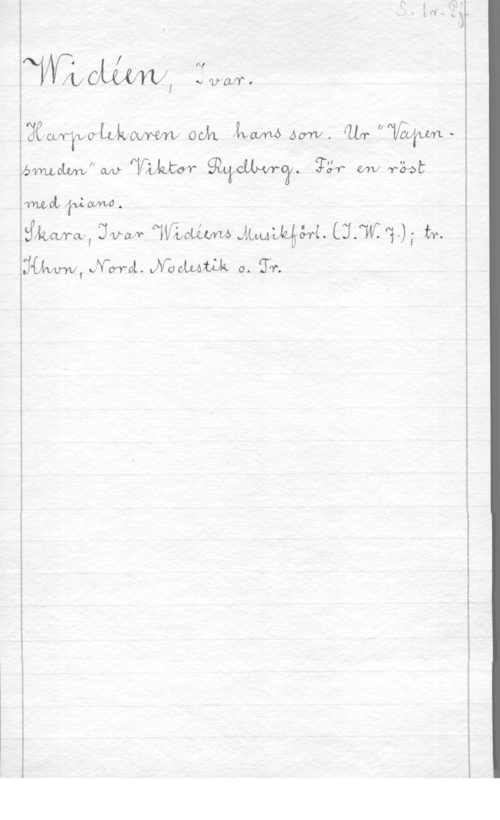 S. 1 r. Pf
Widéen, Ivar.
Harpolekaren och hans son. Ur "Vapen-
smeden" av Viktor Rydberg. För en röst
med piano.
Skara, Ivar Widéens Musikförl. (I.W. 7.); tr.
Khvn, Nord. Nodestik o. Tr.